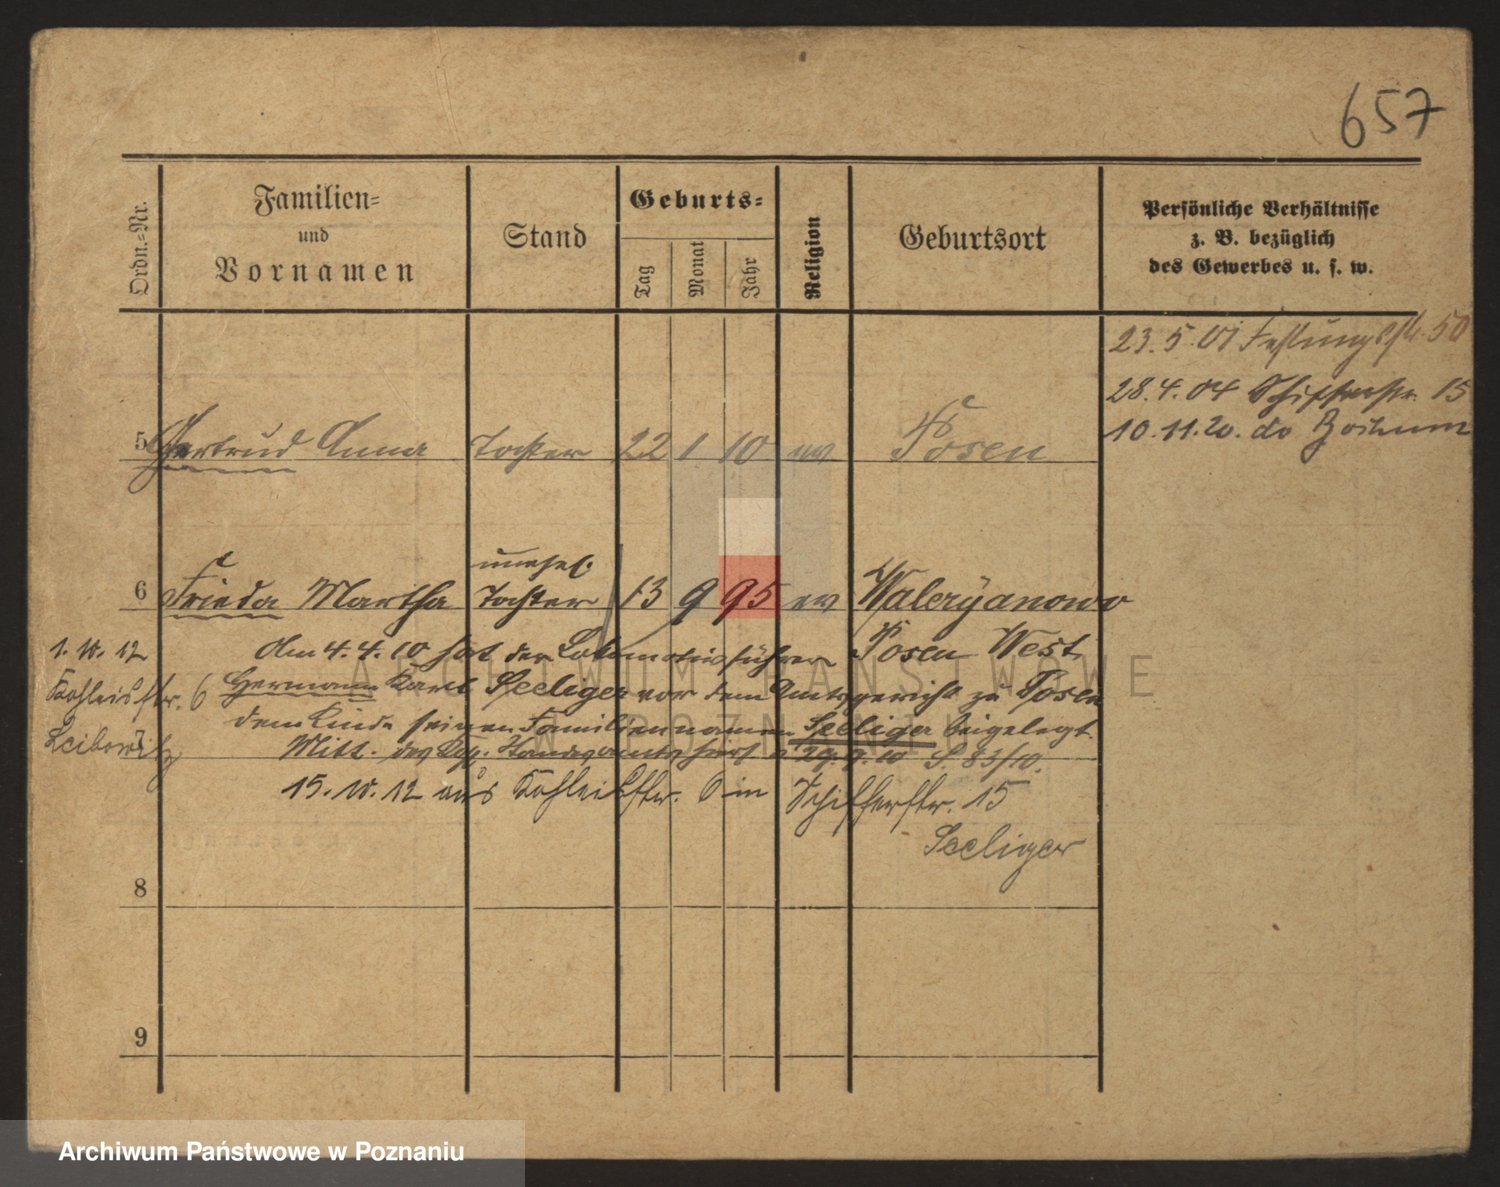 657
Ordn.-Nr.
Familien-
und
Vornamen
Stand
Geburts-
Tag
Monat
Jahr
Religion
Geburtsort
Persönliche Verhältnisse
z. B. bezüglich
des Gewerbes u. s. w.
23. 5. 01 Festungsstr. 50
28. 4. 04 Schifferstr. 15
10. 11. 20. do Bochum
5 Gertrud Anna Tochter 22 1 10 ev Posen
unehel.
6 Frieda Martha Tochter 13 9 95 ev Waleryanowo
Posen West
1. 10. 12
Kohleisstr. 6
Leibowitz
Am 4. 4. 10 hat der Lokomotivführer
Hermann Karl Seeliger vor dem Amtsgericht zu Posen
dem Kinde seinen Familiennamen Seeliger beigelegt.
Mitt. des Kgl. Standesamts hier v 29. 9. 10 S. 83/10.
15. 10. 12 aus Kohleisstr. 6 in Schifferstr. 15
Seeliger
8
9
ARCHIWUM PAŃSTWOWE
W POZNANIU
Archiwum Państwowe w Poznaniu